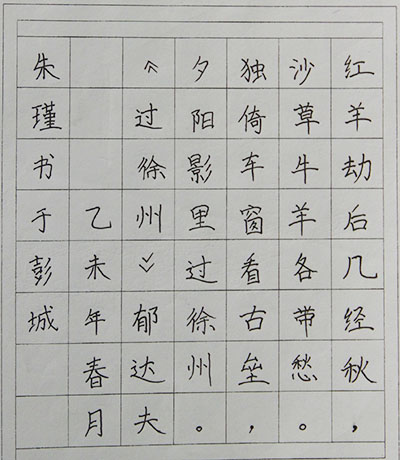 红羊劫后几经秋，
沙草牛羊各带愁。
独倚车窗看古垒，
夕阳影里过徐州。
《过徐州》郁达夫
乙未年春月
朱瑾书于彭城